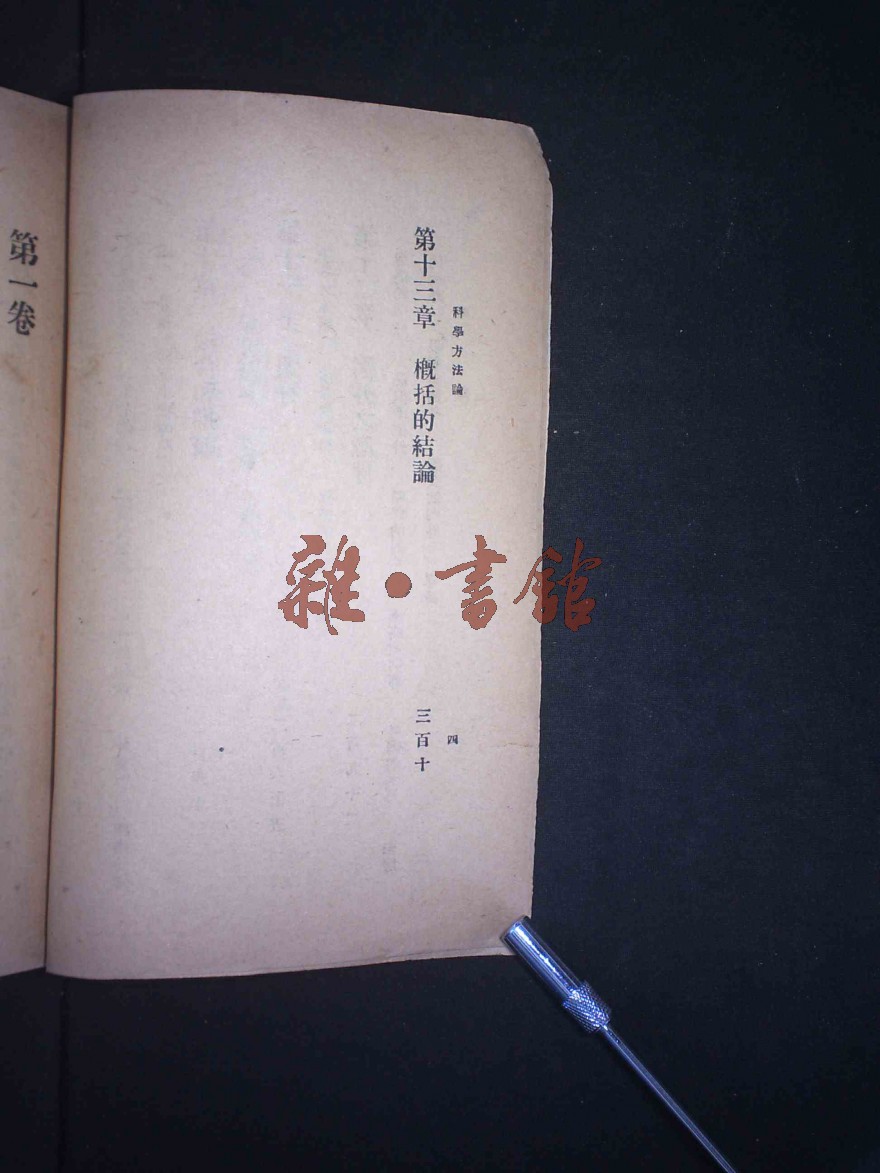 科學方法論
四
第十三章 概括的結論
三百十
第一卷
雜・書館